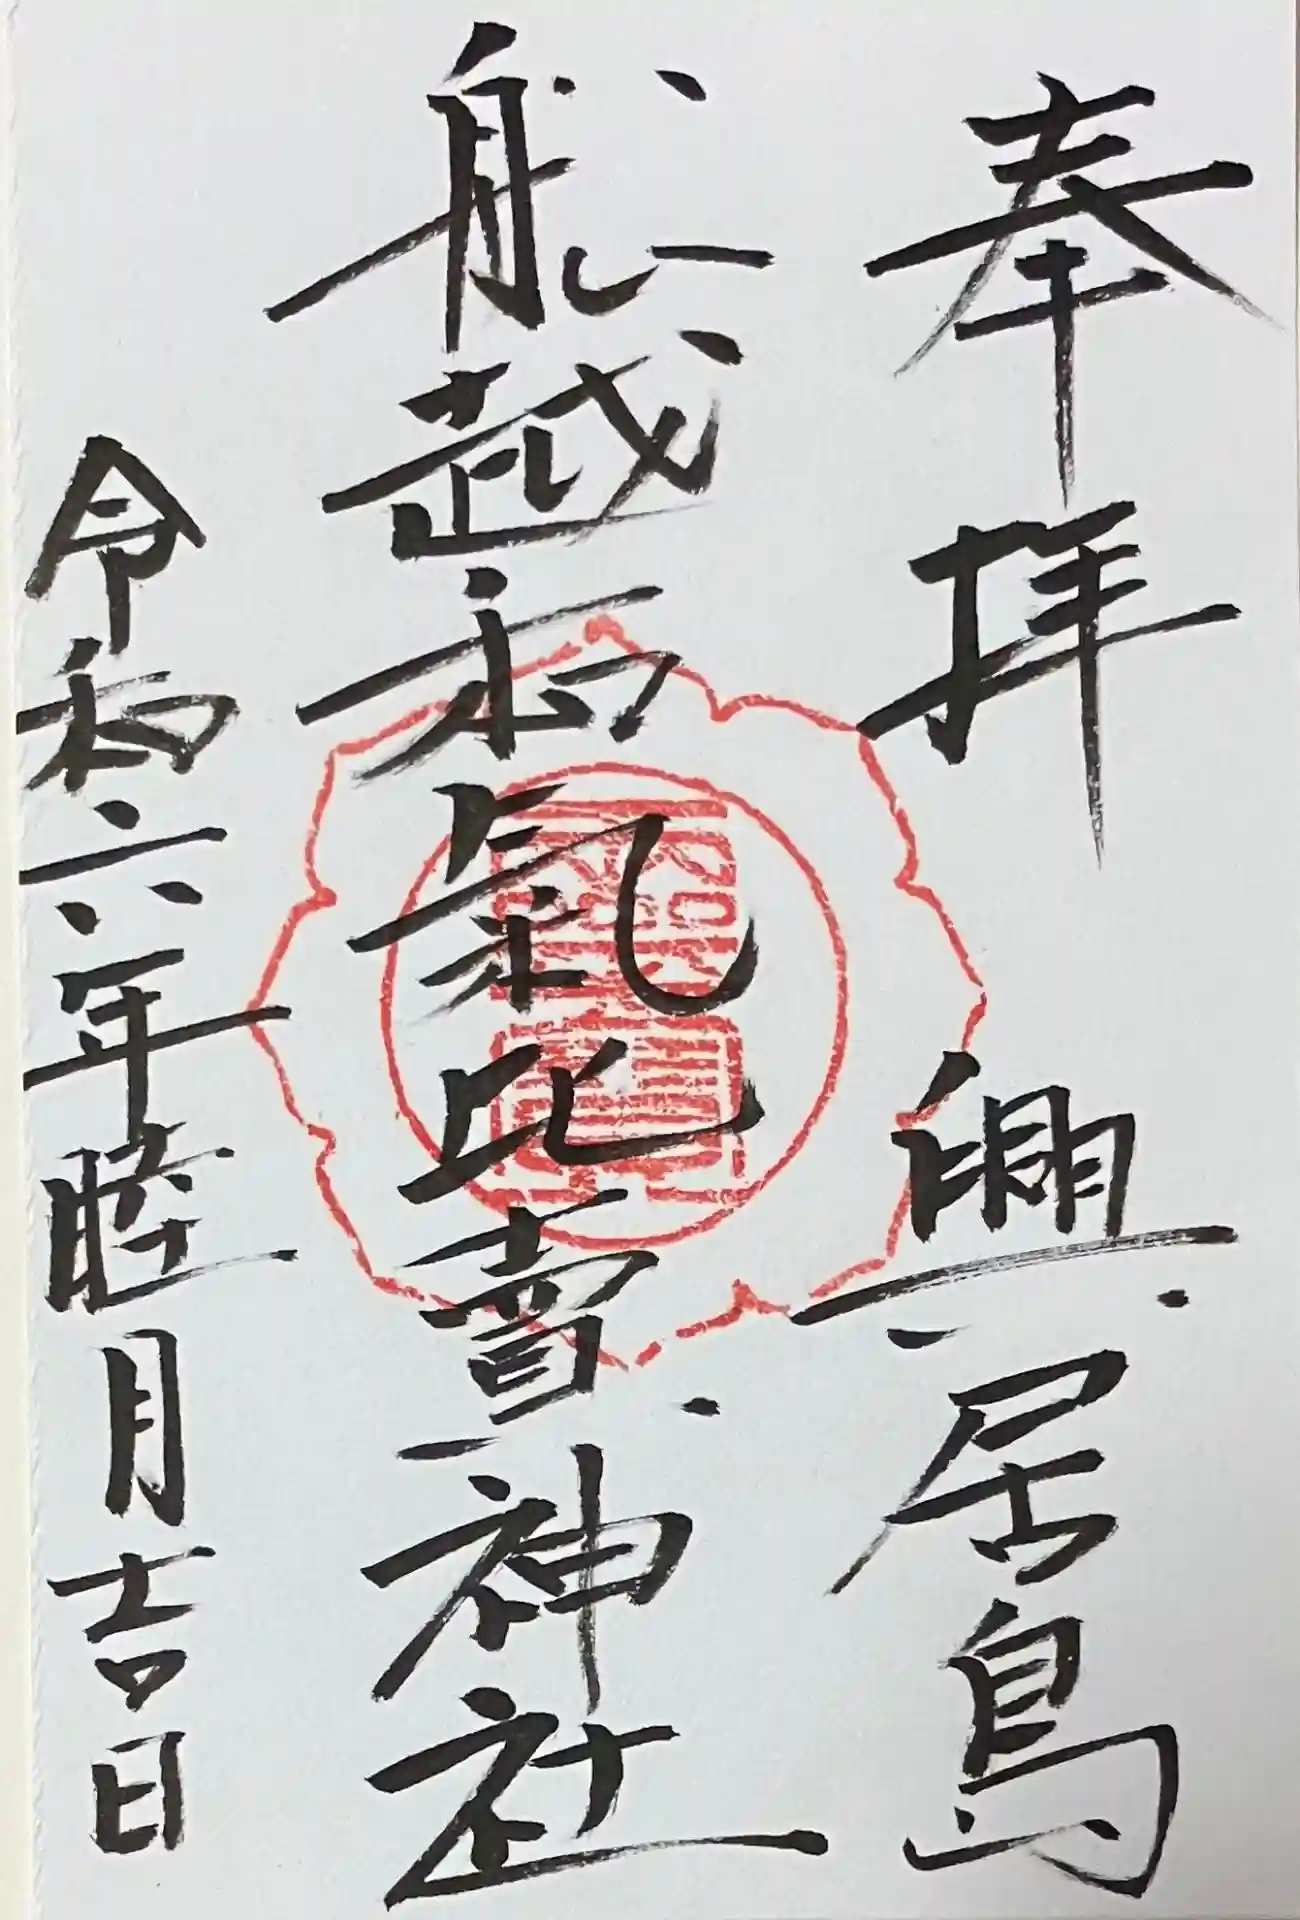 奉拝
興居島
船越和氣比賣神社
令和六年睦月吉日